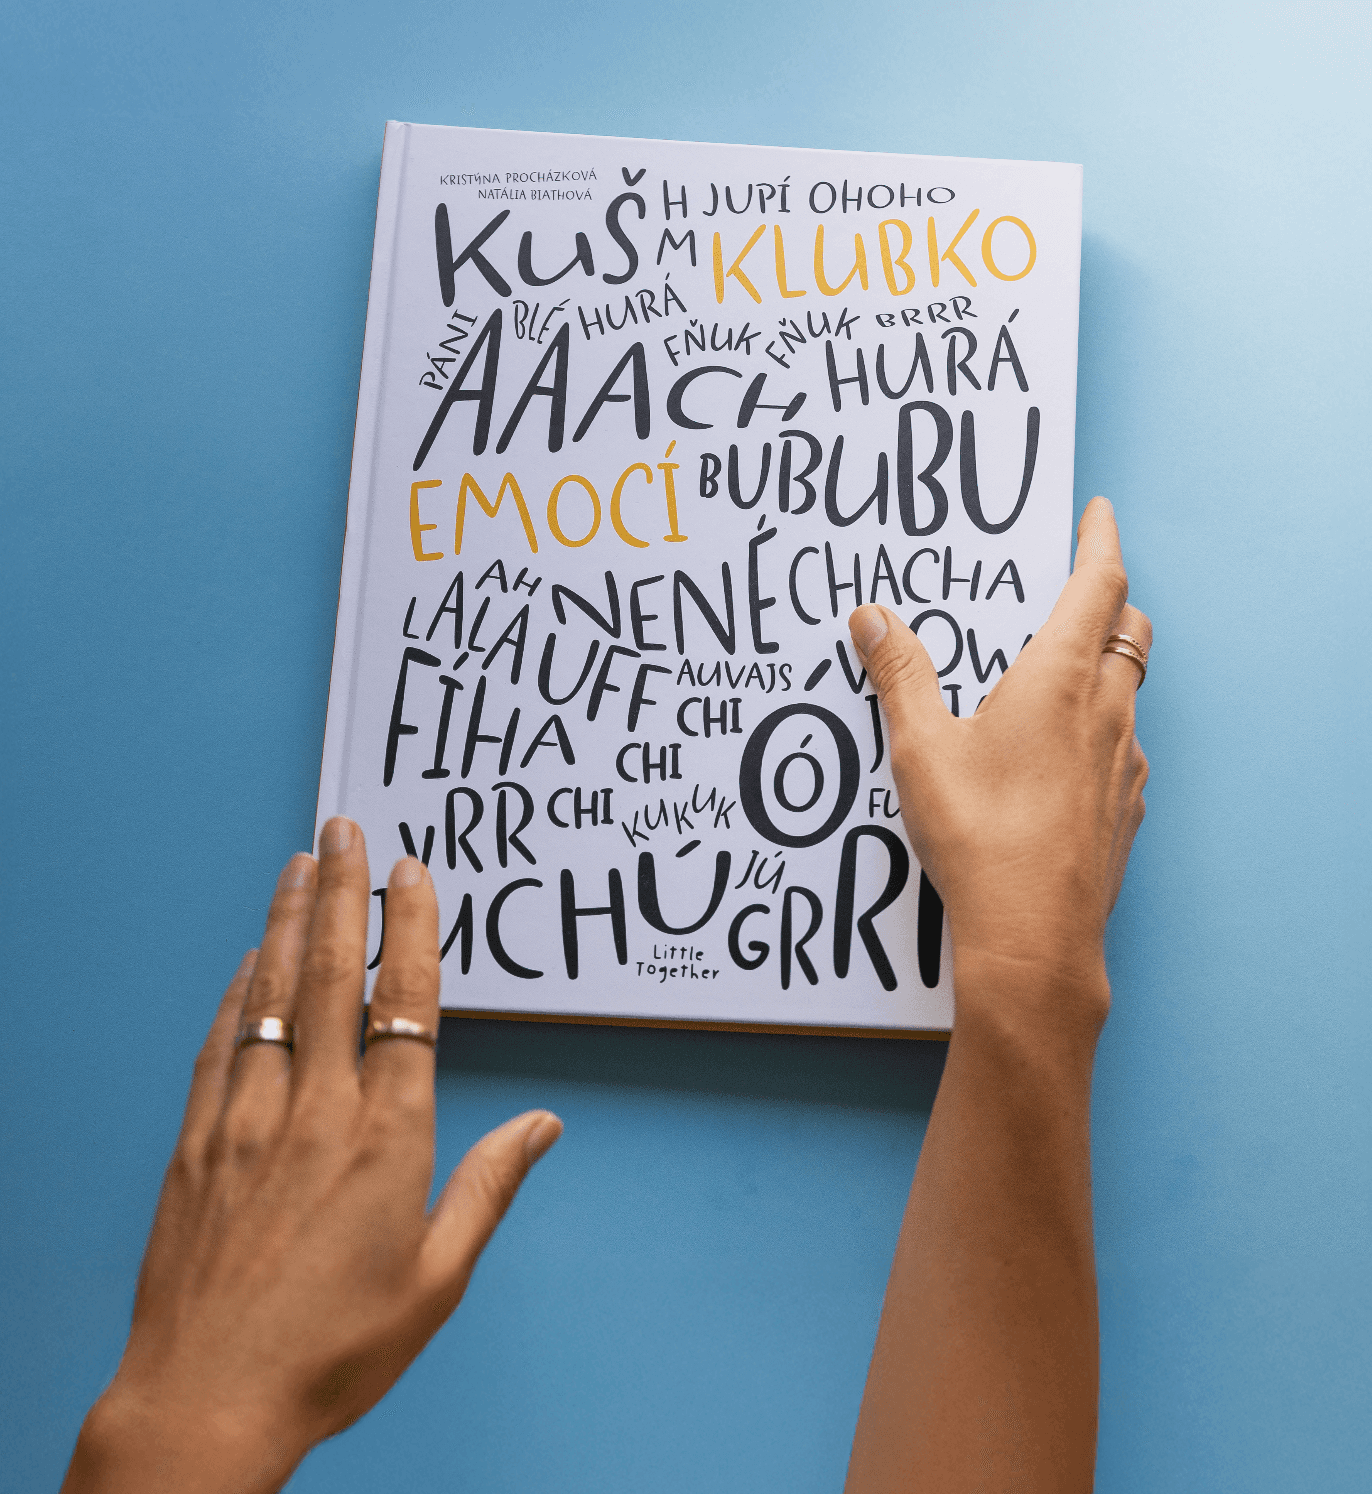 KRISTÝNA PROCHÁZKOVÁ
NATÁLIA BIATHOVÁ
KUŠ
HM
JUPÍ OHOHO
KLUBKO
PÁNI
BLÉ
HURÁ
FŇUK FŇUK
BRRR
AAACH
HURÁ
EMOCÍ
BUBUBU
AH
LALALÁ
NENENÉ
CHACHACHA
UFF
AUVAJS
FÍHA
CHI
CHI
CHI
Ó
Ó
VRR
KUKUK
JUCHÚ
JÚ
Little
Together